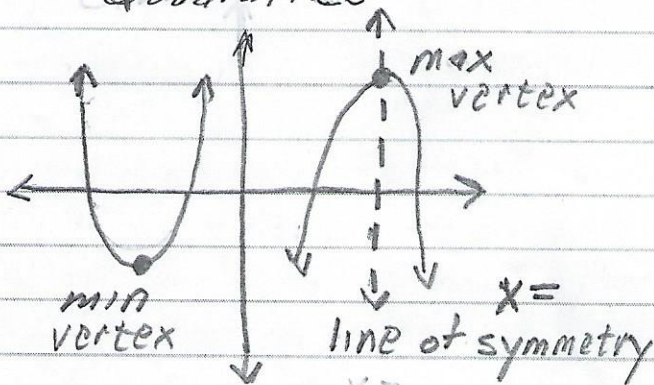 max
vertex
min
vertex
x=
line of symmetry